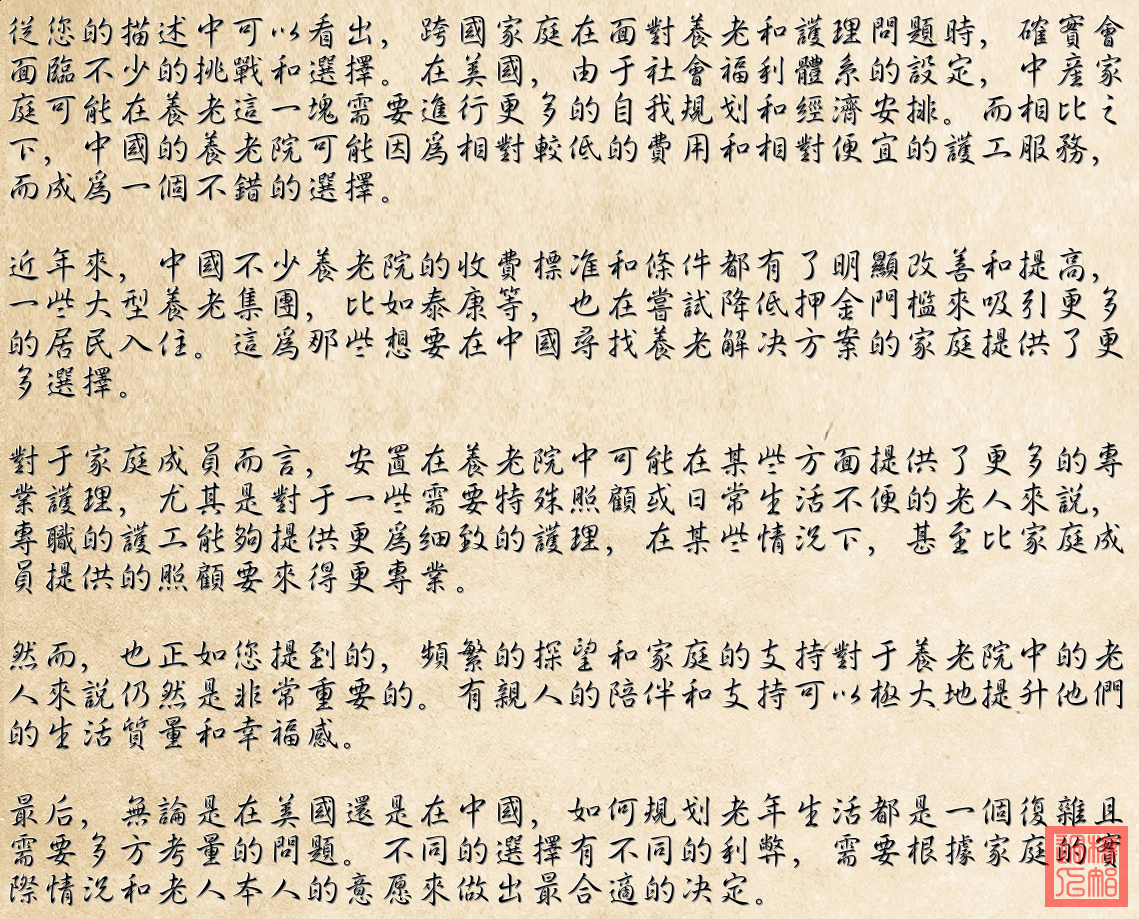 從您的描述中可以看出，跨國家庭在面對養老和護理問題時，確實會
面臨不少的挑戰和選擇。在美國，由于社會福利體系的設定，中産家
庭可能在養老這一塊需要進行更多的自我規划和經濟安排。而相比之
下，中國的養老院可能因爲相對較低的費用和相對便宜的護工服務，
而成爲一個不錯的選擇。
近年來，中國不少養老院的收費標准和條件都有了明顯改善和提高，
一些大型養老集團，比如泰康等，也在嘗試降低押金門檻來吸引更多
的居民入住。這爲那些想要在中國尋找養老解决方案的家庭提供了更
多選擇。
對于家庭成員而言，安置在養老院中可能在某些方面提供了更多的專
業護理，尤其是對于一些需要特殊照顧或日常生活不便的老人來説，
專職的護工能夠提供更爲細致的護理，在某些情况下，甚至比家庭成
員提供的照顧要來得更專業。
然而，也正如您提到的，頻繁的探望和家庭的支持對于養老院中的老
人來説仍然是非常重要的。有親人的陪伴和支持可以極大地提升他們
的生活質量和幸福感。
最后，無論是在美國還是在中國，如何規划老年生活都是一個復雜且
需要多方考量的問題。不同的選擇有不同的利弊，需要根據家庭的實
際情况和老人本人的意愿來做出最合適的决定。